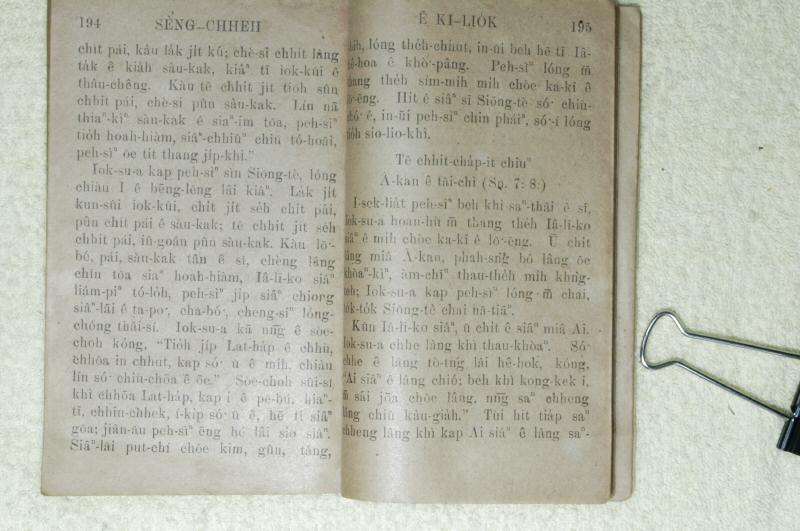 194 SÈNG-CHHEH
chit pái, kàu la̍k ji̍t kú; chè-si chhit lâng
ta̍k ê kia̍h sàu-kak, kiâⁿ tī iok-kūi ê
thâu-chêng. Kàu tē chhit ji̍t tio̍h sûn
chhit pái, chè-si pûn sàu-kak. Lín nā
thiaⁿ-kìⁿ sàu-kak ê siaⁿ-im tōa, peh-sìⁿ
tio̍h hoah-hiàm, siâⁿ-chhiûⁿ chiū tó-hoāi,
peh-sìⁿ ōe tit thang ji̍p-khì.”
Iok-su-a kap peh-sìⁿ sìn Siōng-tè, lóng
chiàu I ê bēng-lēng lâi kiâⁿ. La̍k ji̍t
kun-sûi iok-kūi, chi̍t ji̍t se̍h chi̍t pái,
pûn chi̍t pái ê sàu-kak; tē chhit ji̍t se̍h
chhit pái, iû-goân pûn sàu-kak. Kàu lō·-
bó, pái, sàu-kak tân ê sî, chèng lâng
chīn tōa siaⁿ hoah-hiàm, Iâ-lī-ko siâⁿ
liâm-piⁿ tó-lo̍h, peh-sìⁿ ji̍p siâⁿ chiong
siâⁿ-lāi ê ta-po·, cha-bó·, cheng-siⁿ lóng-
chóng thâi-sí. Iok-su-a kā nn̄g ê sòe-
choh kóng, “Tio̍h ji̍p Lat-ha̍p ê chhù,
chhōa in chhut, kap só· ū ê mi̍h, chiàu
lín só· chiù-chōa ê ōe.” Sòe-choh sûi-sî
khì chhōa Lat-ha̍p, kap i ê pē-bú, hiaⁿ-
tī, chhin-chhek, í-ki̍p só· ū ê, hē tī siâⁿ
gōa; jiân-āu peh-sìⁿ ēng hé lâi sio siâⁿ.
Siâⁿ-lāi put-chí chōe kim, gûn, tâng,
Ê KÌ-LIO̍K 195
thih, lóng the̍h-chhut, in-ūi beh hē tī Iâ-
hô-hoa ê khò·-pâng. Peh-sìⁿ lóng m̄
thang the̍h sím-mi̍h mi̍h chòe ka-kī ê
lō·-ēng. Hit ê siâⁿ sī Siōng-tè só· chiù-
chó· ê, in-ūi peh-sìⁿ chin pháiⁿ, só·-í lóng
tio̍h sio-lio-khì.
Tē chhit-cha̍p-it chiuⁿ
A-kan ê tāi-chì (Sp. 7: 8.)
Í-sek-lia̍t peh-sìⁿ beh khì saⁿ-thâi ê sî,
Iok-su-a hoan-hù m̄ thang the̍h Iâ-lī-ko
siâⁿ ê mi̍h chòe ka-kī ê lō·-ēng. Ū chi̍t
lâng miâ A-kan, phah-sǹg bô lâng ōe
khòaⁿ-kìⁿ, àm-chīⁿ thau-the̍h mi̍h khǹg-
teh; Iok-su-a kap peh-sìⁿ lóng m̄ chai,
to̍k-to̍k Siōng-tè chai nā-tiāⁿ.
Kūn Iâ-lī-ko siâⁿ, ū chi̍t ê siâⁿ miâ Ai.
Iok-su-a chhe lâng khì thau-khòaⁿ. Só·
chhe ê lâng tò-tńg lâi hê-hok, kóng,
“Ai siâⁿ ê lâng chió; beh khì kong-kek i,
m̄ sái jōa chōe lâng, nn̄g saⁿ chheng
lâng chiū kàu-gia̍h.” Tùi hit tia̍p saⁿ
chheng lâng khì kap Ai siâⁿ ê lâng saⁿ-